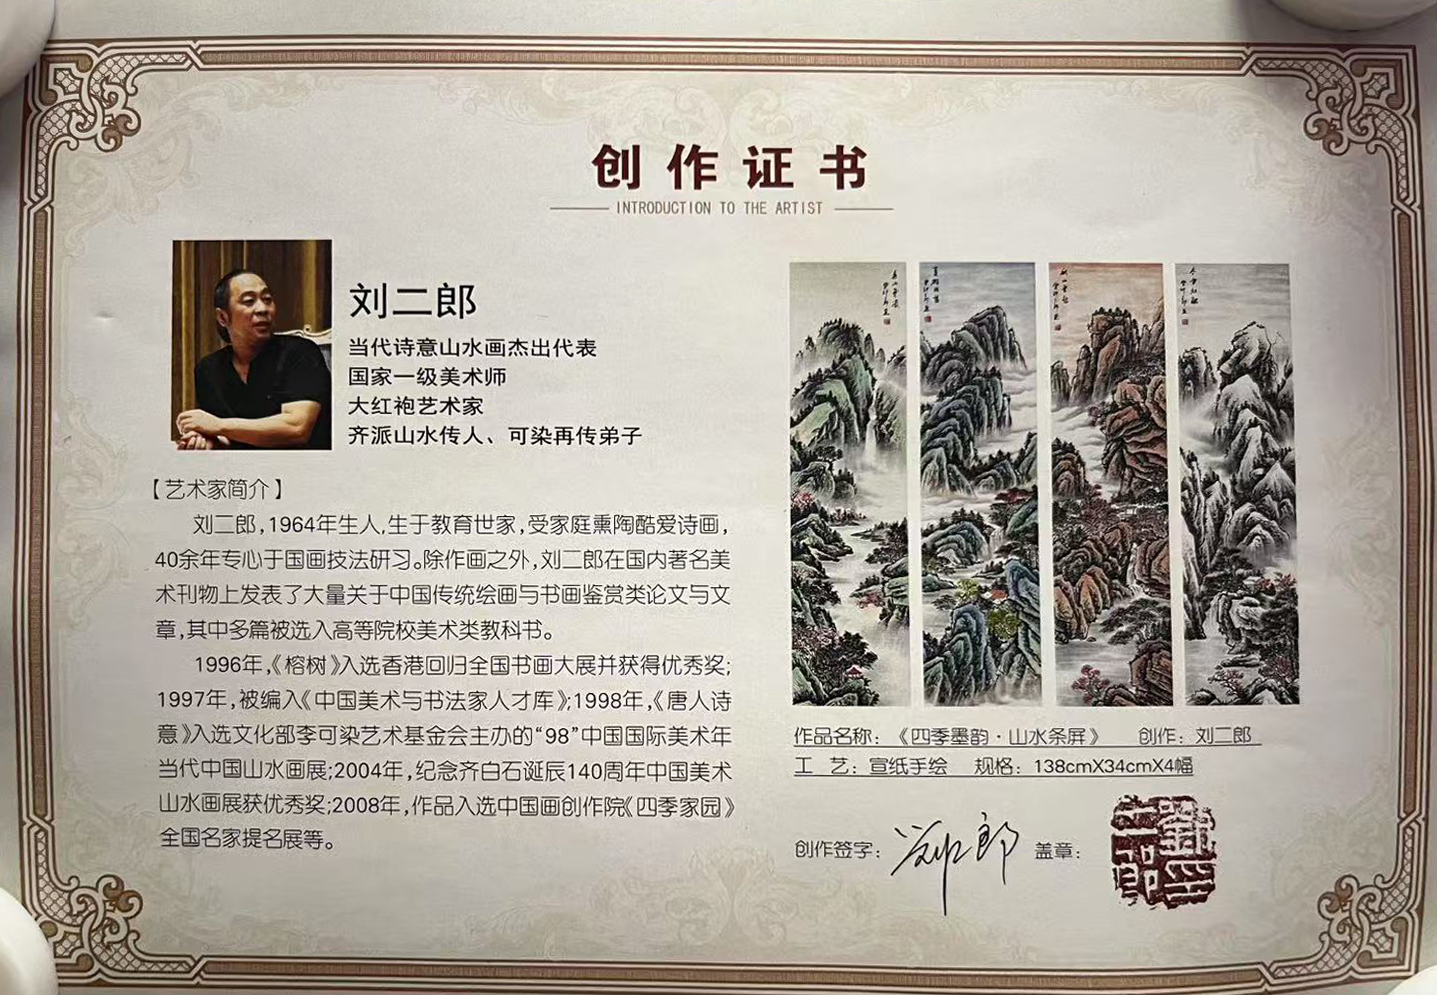 创作证书
INTRODUCTION TO THE ARTIST
刘二郎
当代诗意山水画杰出代表
国家一级美术师
大红袍艺术家
齐派山水传人、可染再传弟子
【艺术家简介】
刘二郎，1964年生人,生于教育世家，受家庭熏陶酷爱诗画，
40余年专心于国画技法研习。除作画之外，刘二郎在国内著名美
术刊物上发表了大量关于中国传统绘画与书画鉴赏类论文与文
章，其中多篇被选入高等院校美术类教科书。
1996年，《榕树》入选香港回归全国书画大展并获得优秀奖；
1997年，被编入《中国美术与书法家人才库》；1998年，《唐人诗
意》入选文化部李可染艺术基金会主办的“98”中国国际美术年
当代中国山水画展；2004年，纪念齐白石诞辰140周年中国美术
山水画展获优秀奖；2008年，作品入选中国画创作院《四季家园》
全国名家提名展等。
作品名称：《四季墨韵·山水条屏》 创作：刘二郎
工 艺：宣纸手绘 规格：138cmX34cmX4幅
创作签字：刘二郎 盖章：